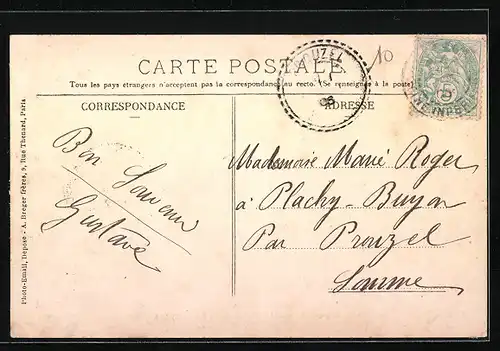 10
CARTE POSTALE
Tous les pays étrangers n'acceptent pas la correspondance au recto. (Se renseigner à la poste).
CORRESPONDANCE
ADRESSE
Bon Souvenir
Gustave
Mademoiselle Marie Roger
à Plachy-Buyon
Par Prouzel
Somme
Photo-Email, Déposé - A. Breger frères, 9, Rue Thenard, Paris